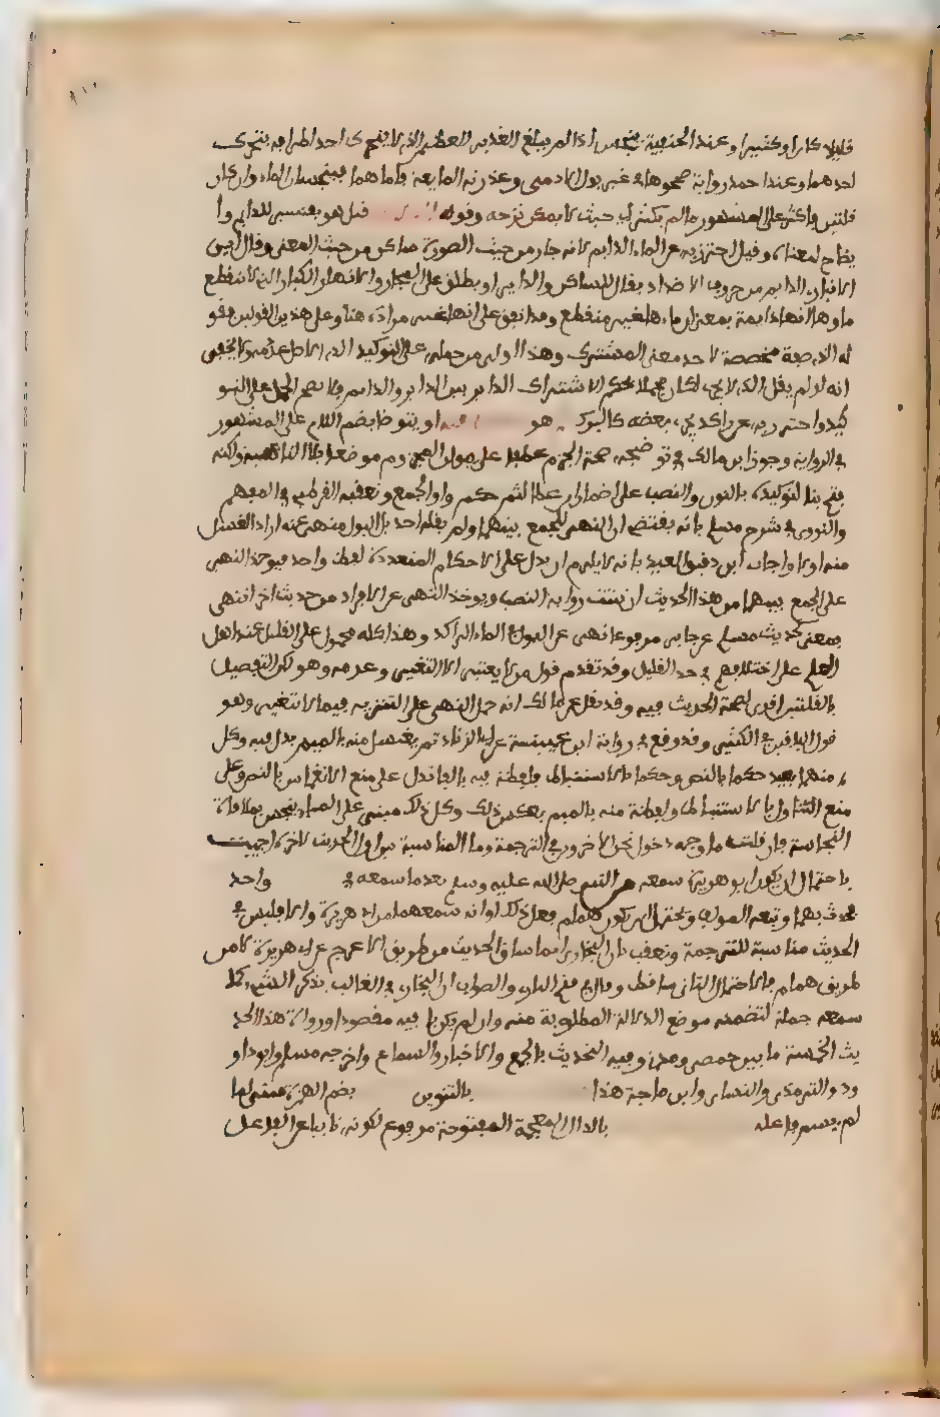 قليلا كان او كثيرا وعند الحنفية ينجس اذا لم يبلغ الغدير العظيم الذي لا يتحرك احد اطرافه بتحرك
احدهما وعند احمد رواية صححوها في غير بول الادمي وعذرته المايعة فاما هما فينجسان الماء وان كان
قلتين فاكثر على المشهور ما لم يكثر اي حيث لا يمكن نزحه وقوله قيل هو تفسير للدايم و
ايضاح لمعناه وقيل احترز به عن الماء الدايم لانه جار من حيث الصورة ساكن من حيث المعنى وقال ابن
الانباري الدايم من حروف الاضداد يقال للساكن والداير او يطلق على البحار والانهار الكبار التي لا ينقطع
ماوها انها دايمة بمعنى ان ماءها غير منقطع وقد اتفق على انها غير مرادة هنا وعلى هذين القولين فقو
له الذي صفة مخصصة لاحد معنى المشترك وهذا اولى من حمله على التوكيد الذي الاصل عدمه ولا يخفى
انه لو لم يقل الذي لا يجري لكان مجملا بحكم الاشتراك الداير بين الداير والدايم فلا يصح الحمل على التو
كيد واحترز به عن راكد يجري بعضه كالبرك هو فيه او يتوضا بضم اللام على المشهور
في الرواية وجوز ابن مالك في توضيحه صحة الجزم عطفا على يبولن المجزوم موضعا بلا الناهية ولكنه
بني بنا لتوكيده بالنون والنصب على اضمار ان عطا لثم حكم واو الجمع وتعقبه القرطبي في المفهم
والنووي في شرح مسلم بانه يقتضي ان النهي للجمع بينهما ولم يقله احد بل البول منهي عنه اراد الغسل
منه او لا واجاب ابن دقيق العيد بانه لا يلزم ان يدل على الاحكام المتعددة لفظ واحد فيوخذ النهي
على الجمع بينهما من هذا الحديث ان ثبتت رواية النصب ويوخذ النهي عن الافراد من حديث اخر انتهى
يعني كحديث مسلم عن جابر مرفوعا نهى عن البول في الماء الراكد وهذا كله محمول على القليل عند اهل
العلم على اختلافهم في حد القليل وقد تقدم قول من لا يعتبر الا التغير وعدمه وهو لكن التفصيل
بالقلتين اقوى لصحة الحديث فيه وقد نقل عن مالك انه حمل النهي على التنزيه فيما لا يتغير وهو
قول الباقين في الكثير وقد وقع في رواية ابن عيينة عن ابي الزناد ثم يغتسل منه بالميم بدل فيه وكل
منهما يفيد حكما بالنص وحكما بالاستنباط فلفظة فيه بالفا تدل على منع الانغماس بالنص وعلى
منع التناول بالاستنباط ولفظة منه بالميم بعكس ذلك وكل ذلك مبني على ان الماء ينجس بملاقاة
النجاسة فان قلت ما وجه دخول نحن الاخرون في الترجمة وما المناسبة بين اول الحديث لاخره اجيب
باحتمال ان يكون ابو هريرة سمعه من النبي صلى الله عليه وسلم بعد ما سمعه في واحد
فحدث بهما وتبعه المولف ويحتمل ان يكون همام فعل ذلك او انه سمعهما من ابي هريرة والا فليس في
الحديث مناسبة للترجمة وتعقب بان البخاري انما ساق الحديث من طريق الاعرج عن ابي هريرة لا من
طريق همام فالاحتمال الثاني ساقط وقال في فتح الباري والصواب ان البخاري في الغالب يذكر الشيء كما
سمعه جملة لتضمنه موضع الدلالة المطلوبة منه وان لم يكن باقيه مقصودا ورواة هذا الحد
يث الخمسة ما بين حمصي ومدني وفيه التحديث بالجمع والاخبار والسماع واخرجه مسلم وابو داو
ود والترمذي والنساي وابن ماجة هذا بالتنوين بضم الهمزة مبني لما
لم يسم فاعله بالذال المعجمة المفتوحة مرفوع لكونه نايبا عن الفاعل